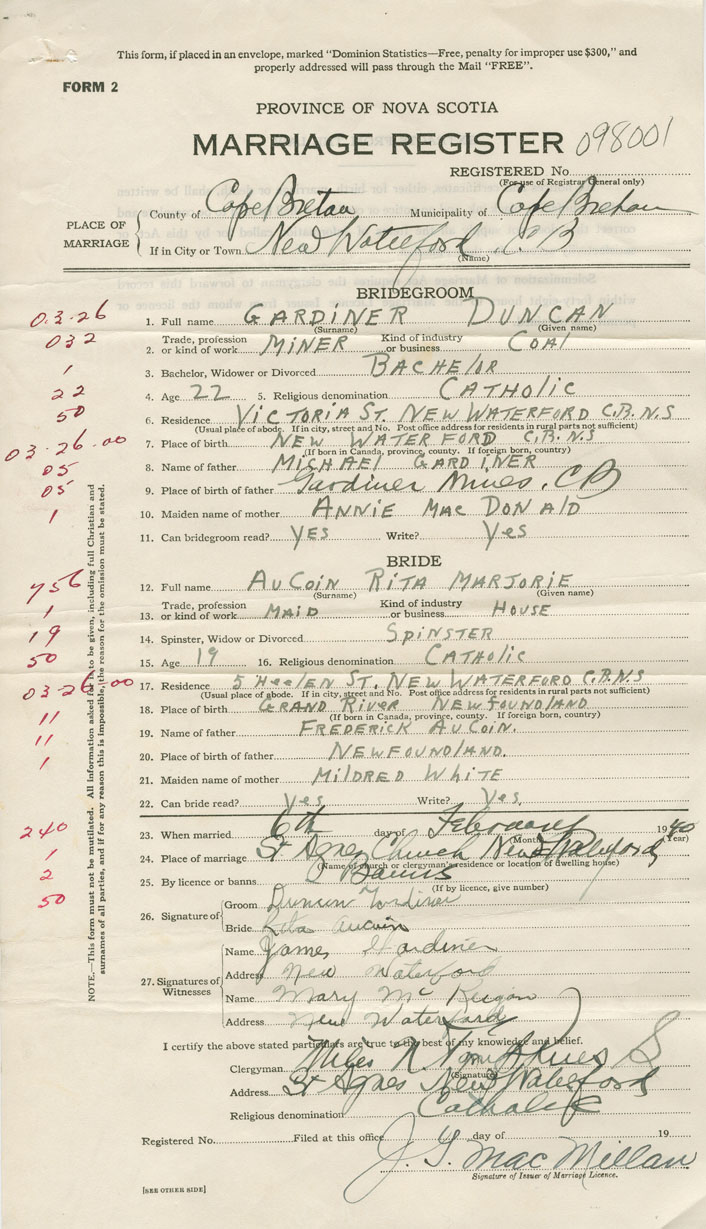 This form, if placed in an envelope, marked "Dominion Statistics—Free, penalty for improper use $300," and
properly addressed will pass through the Mail "FREE".
FORM 2
PROVINCE OF NOVA SCOTIA
MARRIAGE REGISTER 098001
REGISTERED No.
(For use of Registrar General only)
PLACE OF MARRIAGE
County of Cape Breton Municipality of Cape Breton
If in City or Town New Waterford C B
(Name)
BRIDEGROOM
03-26 1. Full name GARDINER DUNCAN
(Surname) (Given name)
032 2. Trade, profession or kind of work MINER Kind of industry or business COAL
1 3. Bachelor, Widower or Divorced BACHELOR
22 4. Age 22 5. Religious denomination CATHOLIC
50 6. Residence VICTORIA ST. NEW WATERFORD C.B. N.S
(Usual place of abode. If in city, street and No. Post office address for residents in rural parts not sufficient)
03-26-00 7. Place of birth NEW WATERFORD C.B. N.S
(If born in Canada, province, county. If foreign born, country)
05 8. Name of father MICHAEL GARDINER
05 9. Place of birth of father Gardiner Mines, CB
1 10. Maiden name of mother ANNIE MAC DONALD
11. Can bridegroom read? YES Write? Yes
BRIDE
756 12. Full name AUCOIN RITA MARJORIE
(Surname) (Given name)
1 13. Trade, profession or kind of work MAID Kind of industry or business HOUSE
19 14. Spinster, Widow or Divorced SPINSTER
50 15. Age 19 16. Religious denomination CATHOLIC
03-26-00 17. Residence 5 HEELEN ST. NEW WATERFORD C.B. N.S
(Usual place of abode. If in city, street and No. Post office address for residents in rural parts not sufficient)
11 18. Place of birth GRAND RIVER NEWFOUNDLAND
(If born in Canada, province, county. If foreign born, country)
11 19. Name of father FREDERICK AUCOIN.
1 20. Place of birth of father NEWFOUNDLAND.
21. Maiden name of mother MILDRED WHITE
22. Can bride read? Yes Write? Yes.
240 23. When married 6th day of February 1940
(Month) (Year)
1 24. Place of marriage St Agnes Church New Waterford
(Name of church or clergyman's residence or location of dwelling house)
2 25. By licence or banns Banns
(If by licence, give number)
50
26. Signature of
Groom Duncan Gardiner
Bride Rita Aucoin
27. Signatures of Witnesses
Name James Gardiner
Address New Waterford
Name Mary Mc Keigan
Address New Waterford
I certify the above stated particulars are true to the best of my knowledge and belief.
Clergyman Miles N.
(Signature)
Address St Agnes New Waterford
Religious denomination Catholic
Registered No. Filed at this office day of 19
J. G. MacMillan
Signature of Issuer of Marriage Licence.
[SEE OTHER SIDE]
NOTE.—This form must not be mutilated. All information asked for is to be given, including full Christian and
surnames of all parties, and if for any reason this is impossible, the reason for the omission must be stated.